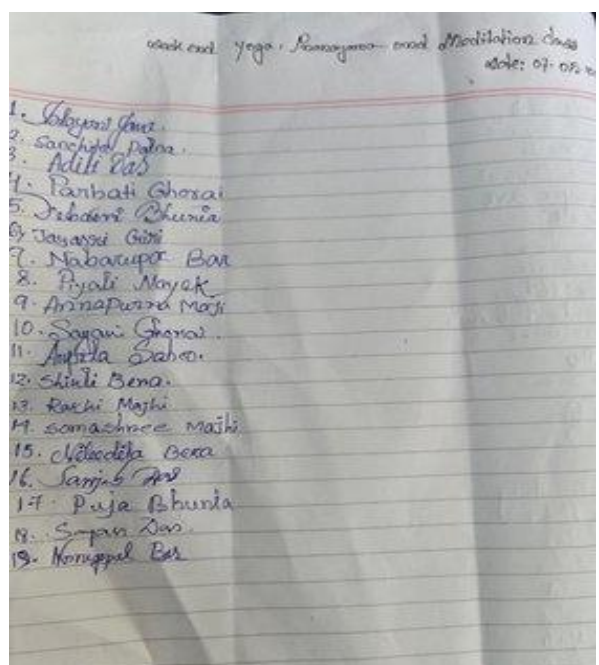 week end yoga, Pranayama and Meditation class
Date: 07-05-
1. Jana
2. Sanchita Patra.
3. Aditi Das
4. Parbati Ghorai
5. Ishani Bhunia
6) Jayasri Giri
7. Nabarupa Bar
8. Piyali Nayek
9. Annapurna Maji
10. Sayani Ghorai.
11. Sahoo.
12. Shiuli Bera.
13. Rakhi Majhi
14. Somashree Majhi
15. Nibedita Bera
16. Sanjib Das
17. Puja Bhunia
18. Das
19. Bar